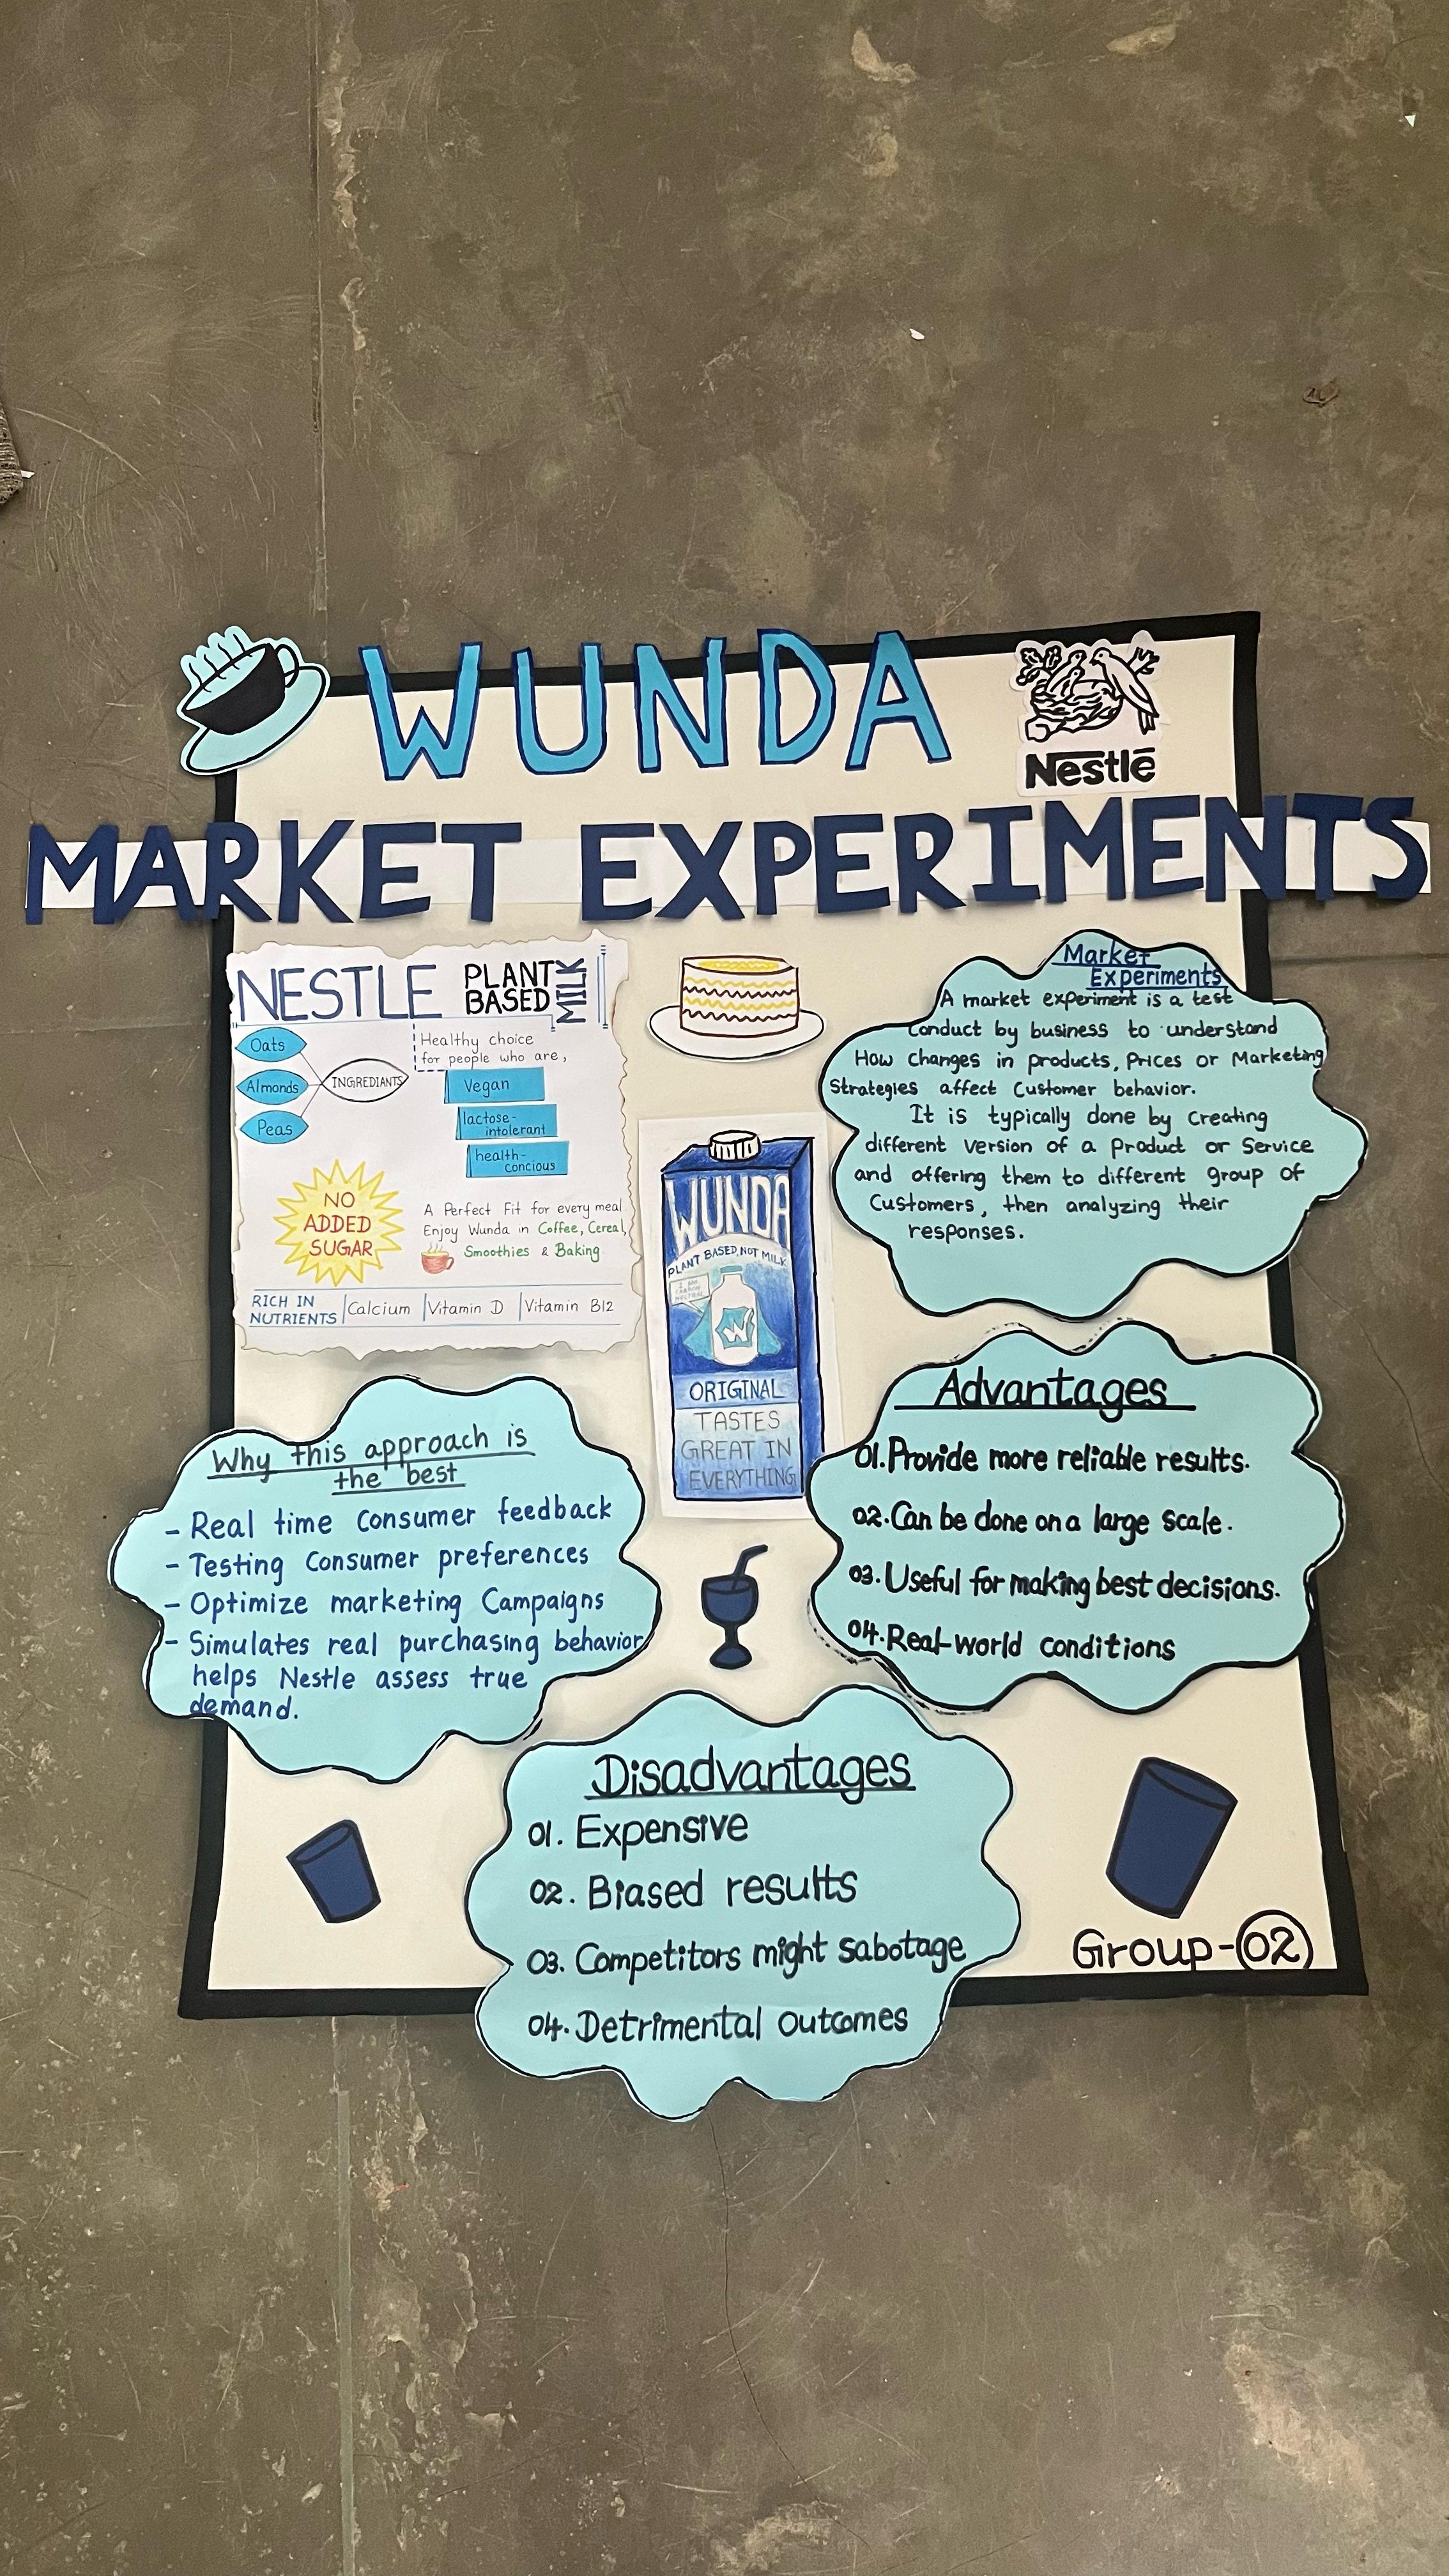 WUNDA
Nestlé
MARKET EXPERIMENTS
NESTLE
PLANT
BASED
MILK
Oats
Almonds
Peas
INGREDIANTS
Healthy choice
for people who are,
Vegan
lactose-
intolerant
health-
concious
NO
ADDED
SUGAR
A Perfect Fit for every meal
Enjoy Wunda in Coffee, Cereal,
Smoothies & Baking
RICH IN
NUTRIENTS
Calcium
Vitamin D
Vitamin B12
WUNDA
PLANT BASED, NOT MILK
I AM
CARBON
NEUTRAL
W
ORIGINAL
TASTES
GREAT IN
EVERYTHING
Market
Experiments
A market experiment is a test
Conduct by business to understand
How changes in products, Prices or Marketing
Strategies affect Customer behavior.
It is typically done by Creating
different Version of a Product or Service
and offering them to different group of
Customers, then analyzing their
responses.
Why this approach is
the best
- Real time Consumer feedback
- Testing Consumer preferences
- Optimize marketing Campaigns
- Simulates real purchasing behavior
helps Nestle assess true
demand.
Advantages
01. Provide more reliable results.
02. Can be done on a large scale.
03. Useful for making best decisions.
04. Real-world conditions
Disadvantages
01. Expensive
02. Biased results
03. Competitors might sabotage
04. Detrimental outcomes
Group-02